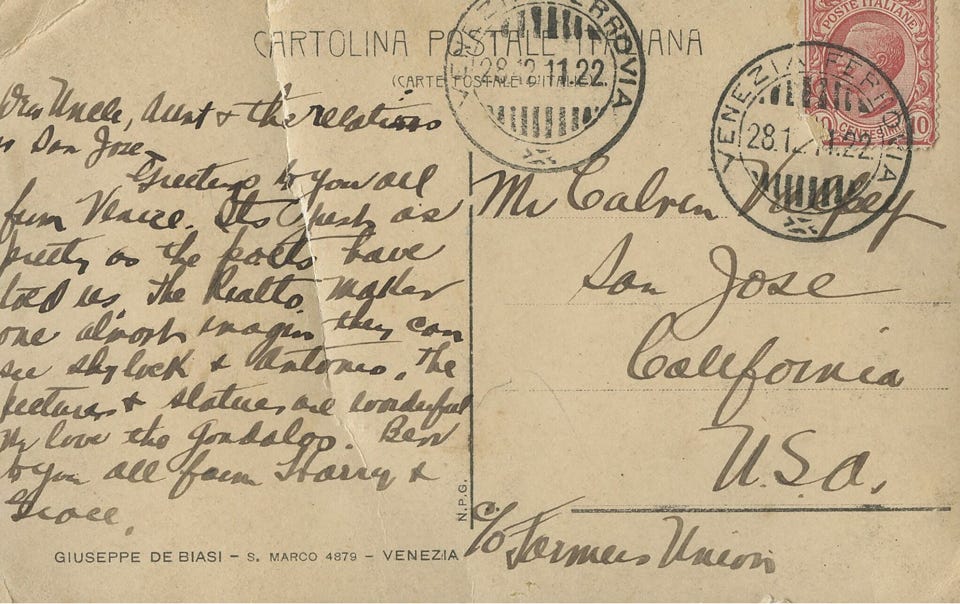 CARTOLINA POSTALE ITALIANA
(CARTE POSTALE D'ITALIE)
VENEZIA FERROVIA
28.12 11.22
VENEZIA FERROVIA
28.12 11.22
POSTE ITALIANE
10 CENTESIMI 10
Dear Uncle, Aunt & the relations
in San Jose
Greetings to you all
from Venice. Its just as
pretty as the poets have
told us. The Rialto makes
one almost imagin they can
see Shylock & Antonio. The
pictures & statues are wonderful
We love the Gondolas. Best
to you all from Harry &
Grace.
Mr Calvin
San Jose
California
U.S.A.
c/o Farmers Union
N.P.G.
GIUSEPPE DE BIASI – S. MARCO 4879 – VENEZIA